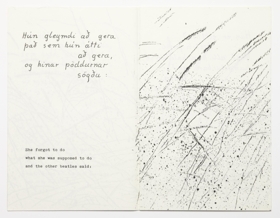 Hún gleymdi að gera
það sem hún átti
að gera,
og hinar pöddurnar
sögðu:
She forgot to do
what she was supposed to do
and the other beetles said: